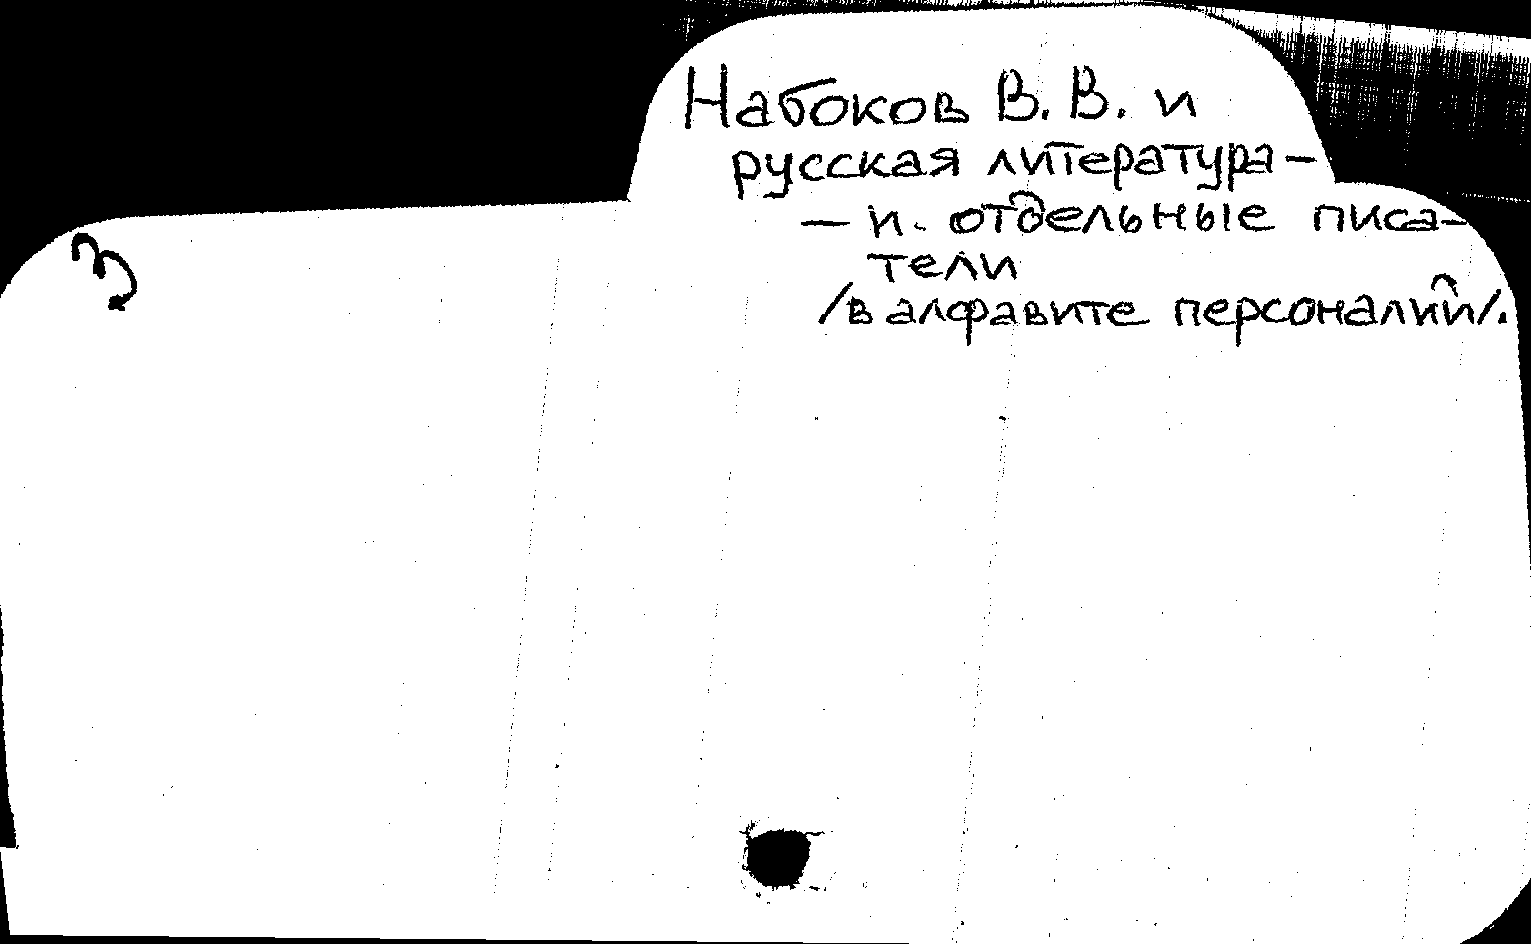 Набоков В. В. и
русская литература –
– и. отдельные писа-
тели
/в алфавите персоналий/.